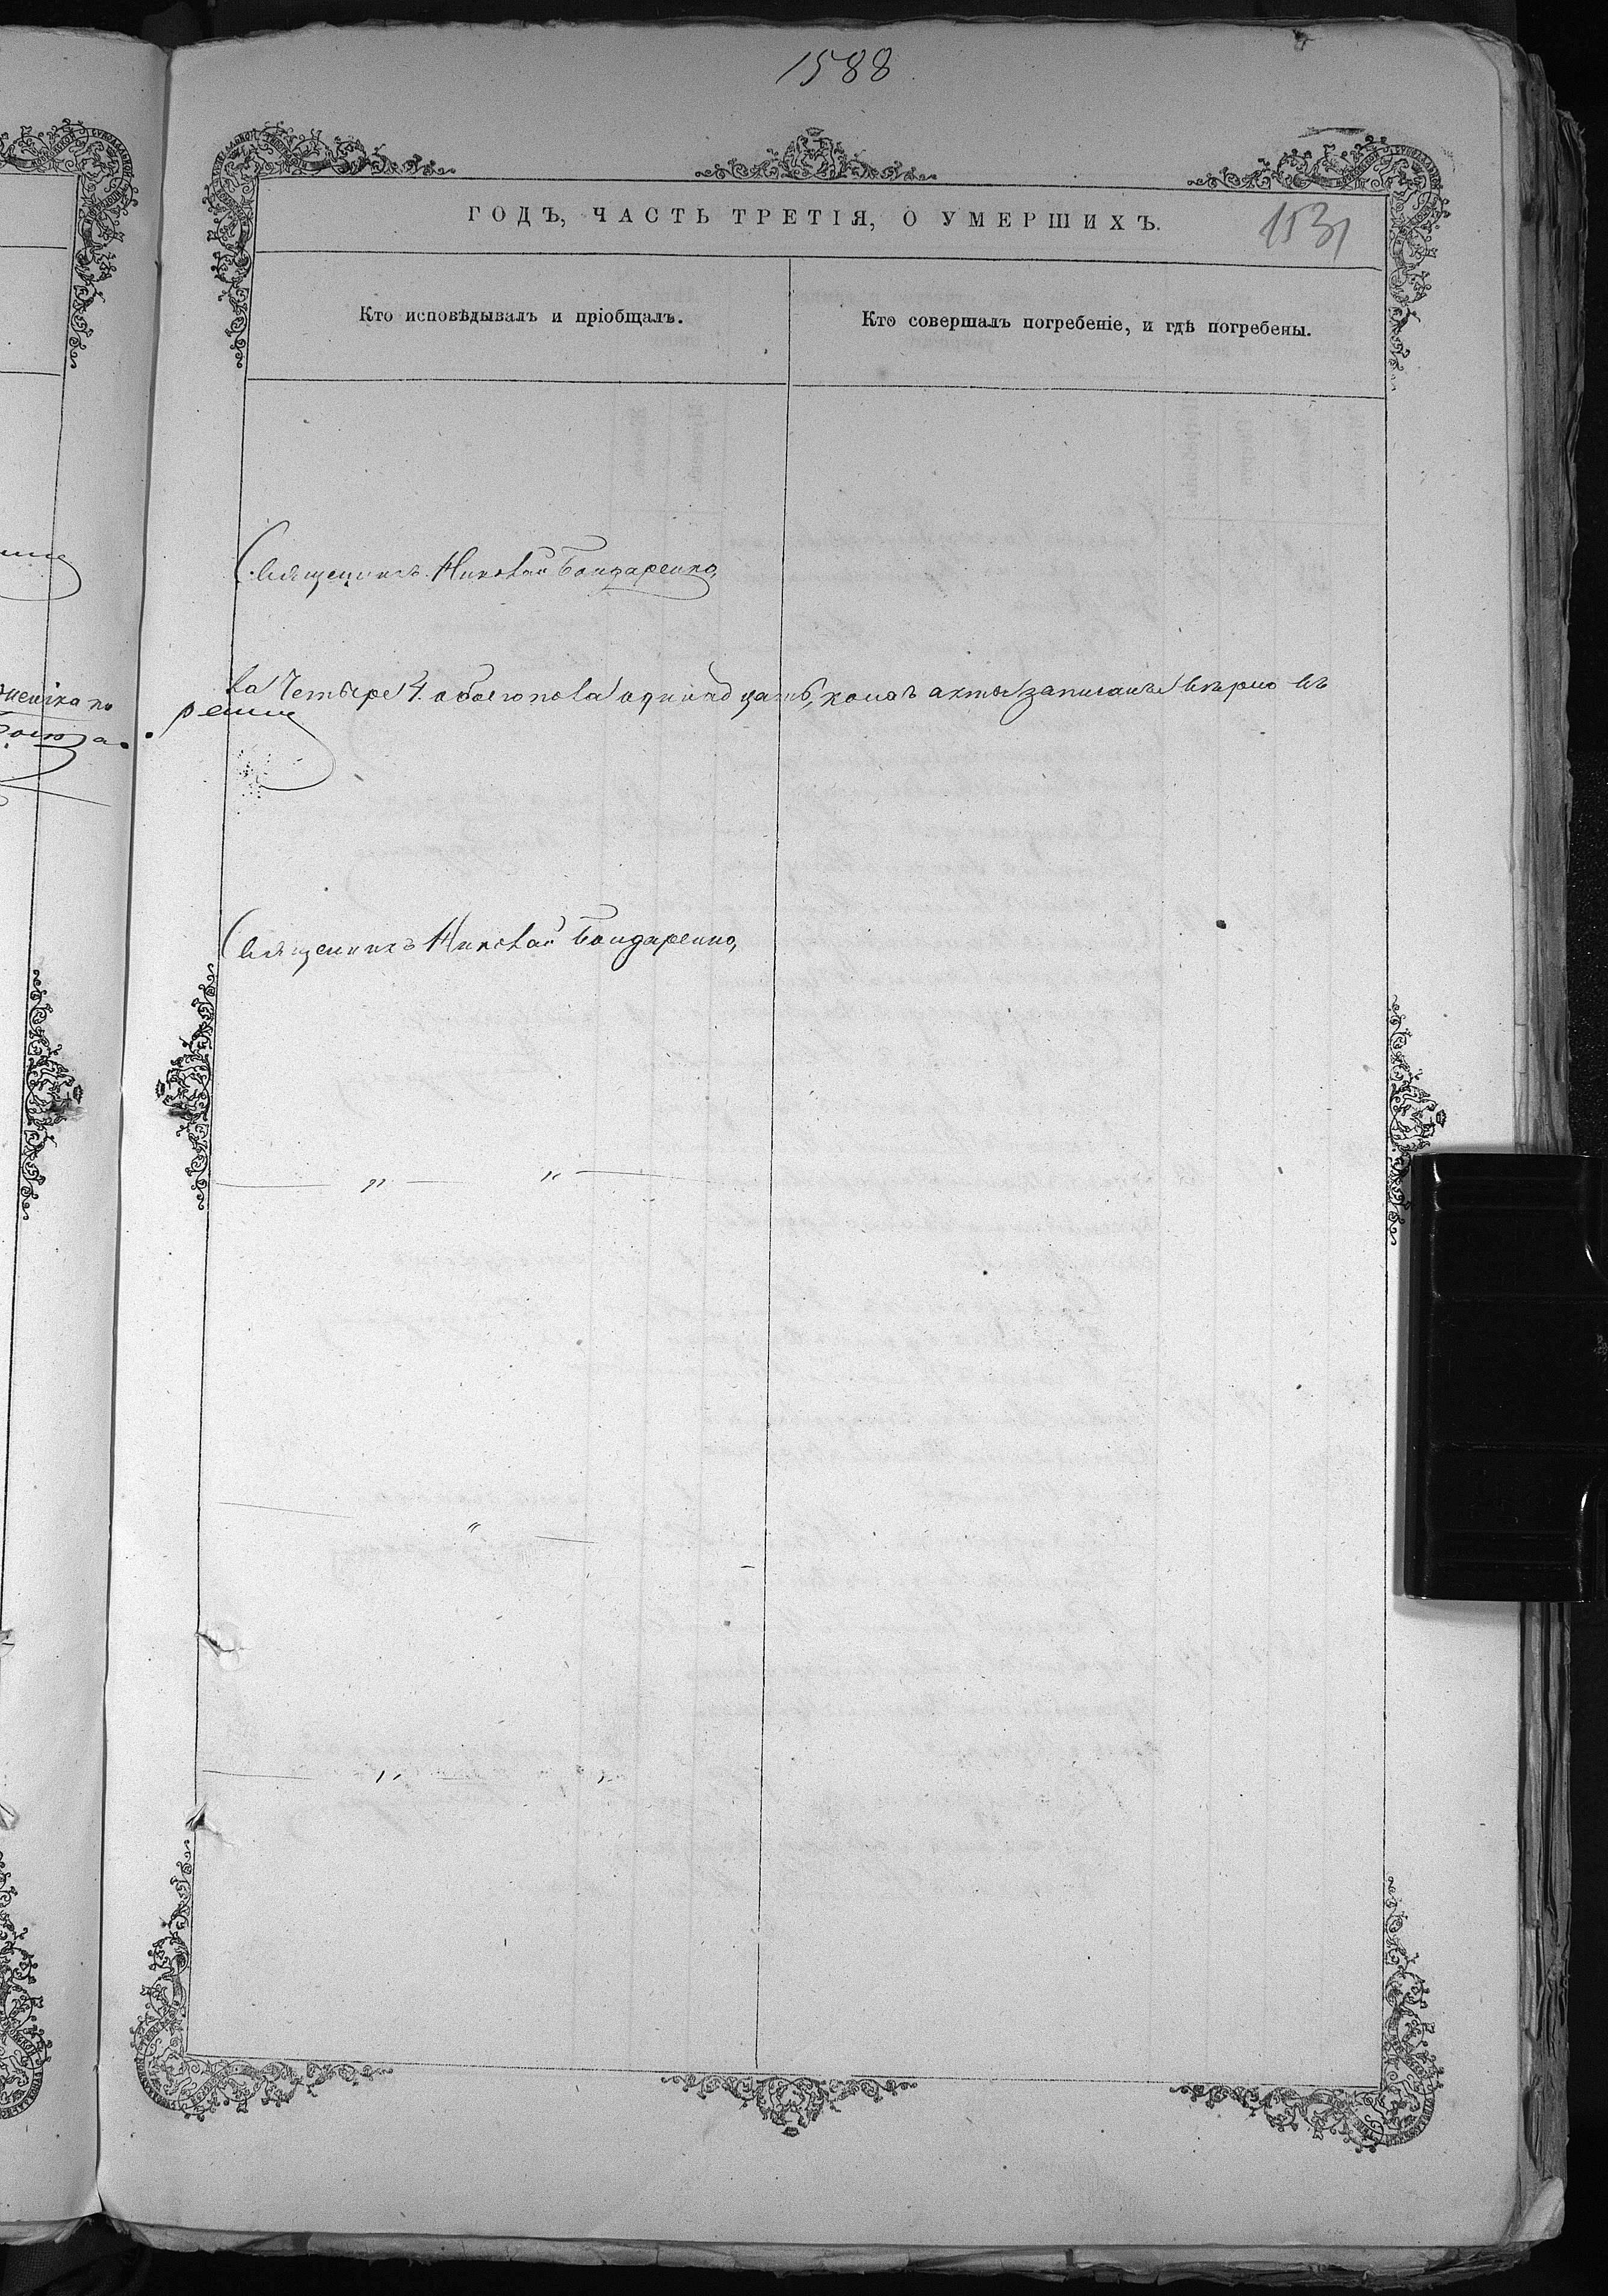 1588
ГОДЪ, ЧАСТЬ ТРЕТІЯ, О УМЕРШИХЪ.
1531
Кто исповѣдывалъ и пріобщалъ.
Кто совершалъ погребеніе, и гдѣ погребены.
Священникъ Николай Бондаренко,
ла Четыре 4. обоего пола одинадцать, коихъ акты записаны вѣрно въ
Священникъ Николай Бондаренко,
" "
"
" "